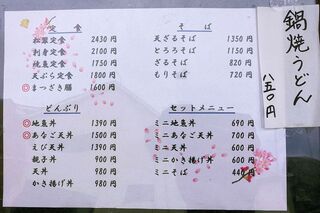 定食
松翠定食 2430円
刺身定食 2100円
焼魚定食 1750円
天ぷら定食 1800円
◎まつざき膳 1600円
どんぶり
◎地魚丼 1390円
◎あなご天丼 1500円
えび天丼 1390円
親子丼 900円
天丼 980円
かき揚げ丼 980円
そば
天ざるそば 1350円
とろろそば 1150円
ざるそば 820円
もりそば 720円
セットメニュー
ミニ地魚丼 690円
ミニあなご天丼 700円
ミニ天丼 600円
ミニかき揚げ丼 600円
ミニそば 440円
鍋焼うどん
八五〇円